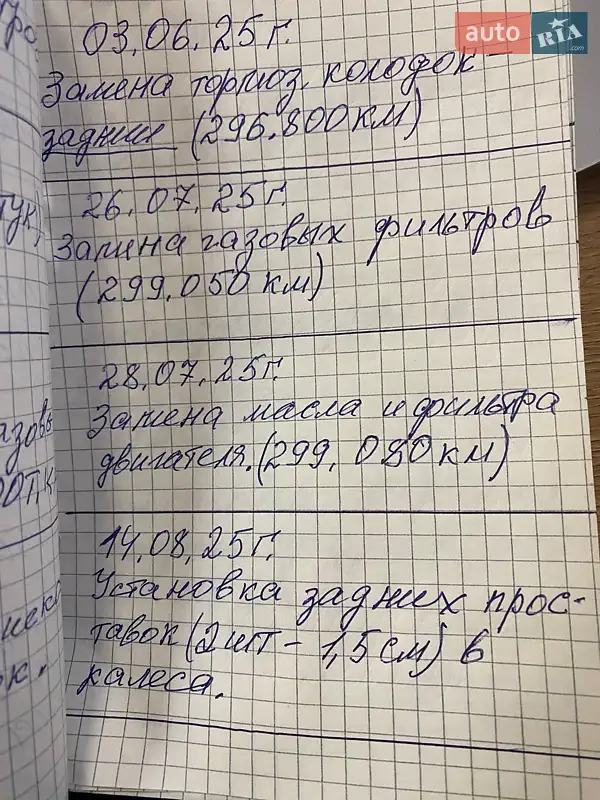 auto RIA .com
03.06.25г.
Замена тормоз. колодок -
задние (296.800 км)
26.07.25г.
Замена газовых фильтров
(299.050 км)
28.07.25г.
Замена масла и фильтра
двигателя. (299.080 км)
14.08.25г.
Установка задних прос-
тавок (2 шт - 1,5 см) в
калеса.